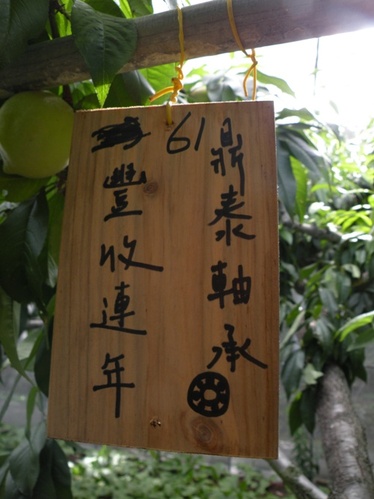 鼎泰軸承
61
豐收連年